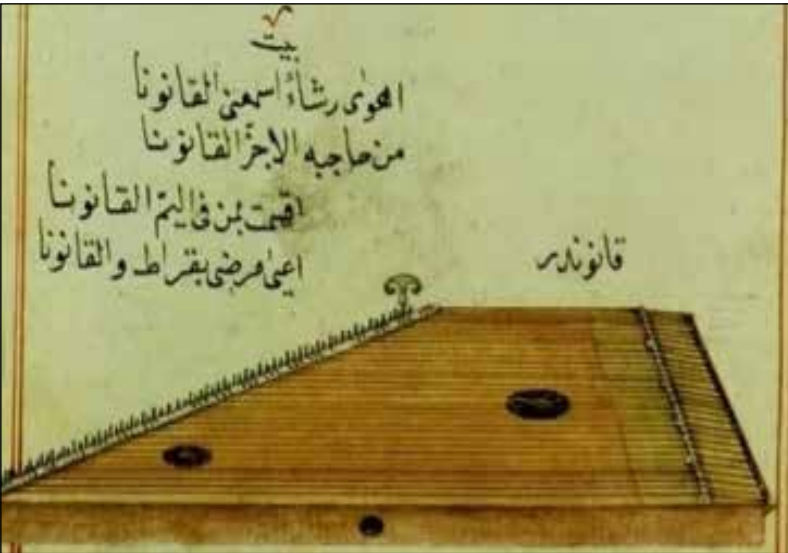 بيت
اهوى رشاءً اسمعنى القانونا
من حاجبه القانونا
اقسمت بمن فى اليمّ القانونا
اعيى مرضى بقراط والقانونا
قانوندر